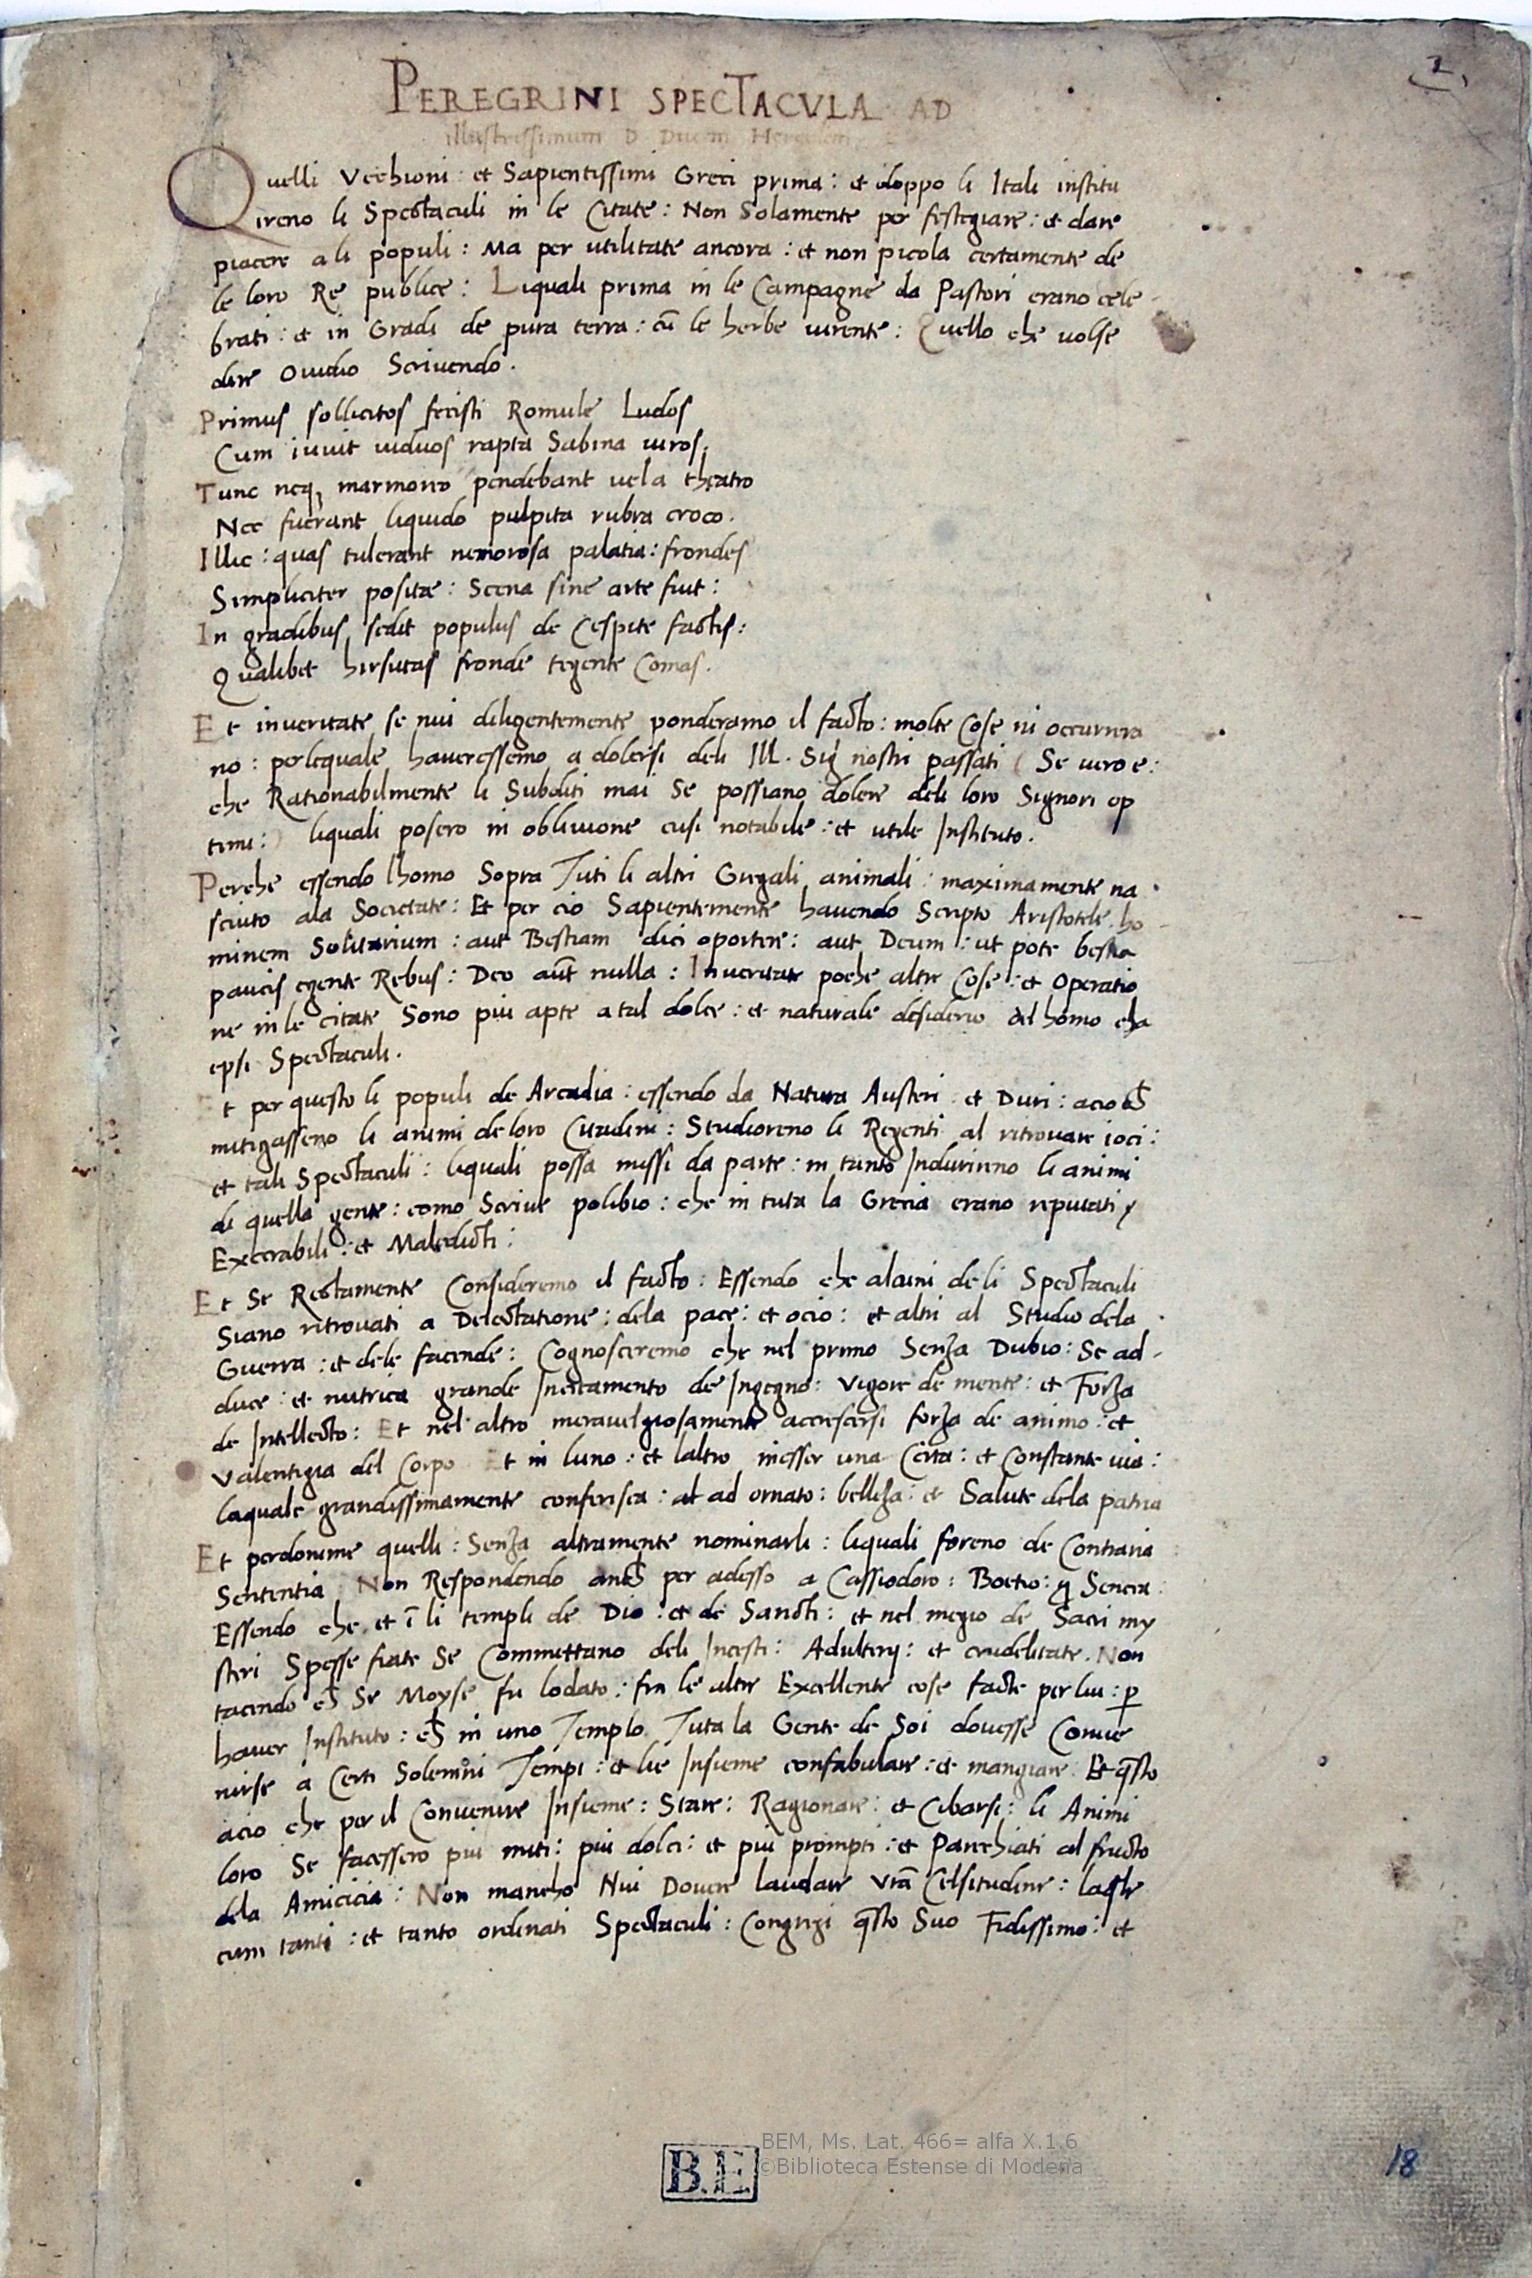 2,
PEREGRINI SPECTACVLA AD
illustrissimum D Ducem Herculem
Quelli Vechioni : et Sapientissimi Greci prima : et doppo li Itali institu
ireno li Spectaculi in le Citate : Non Solamente per festegiare : et dare
piacere a li populi : Ma per utilitate ancora : et non picola certamente de
le loro Re publice : Liquali prima in le Campagne da Pastori erano cele
brati : et in Gradi de pura terra : cū le herbe virente : Quello che volse
dire Ovidio Scrivendo .
Primus sollicitos fecisti Romule Ludos
Cum iuvit viduos rapta Sabina viros .
Tunc neq; marmoreo pendebant vela theatro
Nec fuerant liquido pulpita rubra croco .
Illic : quas tulerant nemorosa palatia : frondes
Simpliciter positæ : Scena sine arte fuit :
In gradibus sedit populus de Cespite factis :
Qualibet hirsutas fronde tegente Comas .
Et inveritate se nui diligentemente ponderamo il facto : molte Cose ni occurrera
no : perlequale haveressemo a dolersi deli Ill . Sig nostri passati ( Se vero e :
che Rationabilmente li Subditi mai Se possiano dolere deli loro Signori op
timi : ) liquali posero in oblivione cusi notabile : et utile Instituto .
Perche essendo lhomo Sopra Tuti li altri Gregali animali : maximamente na
sciuto ala Societate : Et per cio Sapientemente havendo Scripto Aristotele . ho
minem Solitarium : aut Bestiam dici oportere : aut Deum : ut pote bestia
paucis egente Rebus : Deo aūt nulla : Inveritate poche altre Cose : et Operatio
ne in le citate Sono piu apte a tal dolce : et naturale desiderio del homo cha
epsi Spectaculi .
Et per questo li populi de Arcadia : essendo da Natura Austeri : et Duri : acio ch̄
mitigasseno li animi de loro Citadini : Studioreno li Regenti al ritrovare ioci :
et tali Spectaculi : liquali possa missi da parte : in tanto Indurirno li animi
di quella gente : como Scrive polibio : che in tuta la Grecia erano reputati
Execrabili : et Maledicti :
Et Se Rectamente Consideremo il facto : Essendo che alcuni de li Spectaculi
Siano ritrovati a Delectatione : dela pace : et ocio : et altri al Studio dela
Guerra : et dele facende : Cognosceremo che nel primo Senza Dubio : Se ad
duce : et nutrica grande Incitamento de Ingegno : Vigore de mente : et Forza
de Intellecto : Et nel altro meravelgiosamente accrescersi forza de animo : et
Valentigia del Corpo Et in luno : et laltro inesser una Certa : et Constante via :
laquale grandissimamente conferisca : al ad ornato : belleza : et Salute dela patria
Et perdonime quelli : Senza altramente nominarli : liquali foreno de Contraria
Sententia : Non Respondendo anch̄ per adesso a Cassiodoro : Boetio : Seneca :
Essendo che et ī li templi de Dio : et de Sancti : et nel megio de Sacri my
steri Spesse fiate Se Commettano deli Incesti : Adulterij : et crudelitate . Non
tacendo ch̄ Se Moyse fu lodato : fra le altre Excellente cose facte per lui : p
haver Instituto : ch̄ in uno Templo Tuta la Gente de Soi dovesse Conve
nirse a Certi Solemni Tempi : et lie Insieme confabulare : et mangiare . Et q̄sto
acio che per il Convenire Insieme : Stare : Ragionare : et Cibarsi : li Animi
loro Se facessero piu miti : piu dolci : et piu prompti : et Parechiati al fructo
dela Amicicia : Non mancho Nui Dovere laudare Vrā Celsitudine : laq̄le
cum tanti : et tanto ordinati Spectaculi : Congregi q̄sto Suo Fidissimo : et
B.E
BEM, Ms. Lat. 466= alfa X.1.6
©Biblioteca Estense di Modena
18